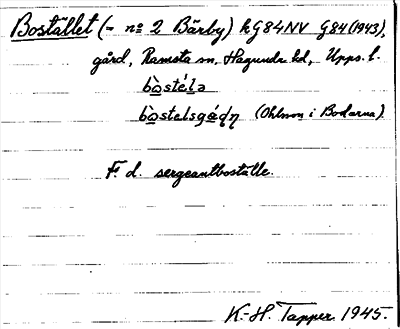 Bostället (= nº 2 Bärby) k G84NV G84(1943),
gård, Ramsta sn, Hagunda hd, Upps. l.
bòstél̠ə
bo̠stelsgá̠ḍṇ (Ohlsson i Bodarna)
F. d. sergeantboställe.
K.-H. Tapper 1945.